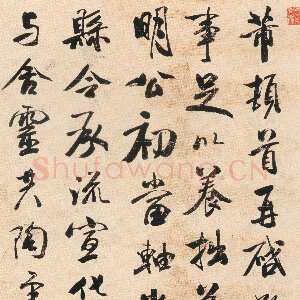 芾頓首再啓
事足以養拙
明公初當軸
縣令承流宣化
与含靈共陶
ShufaWang.CN